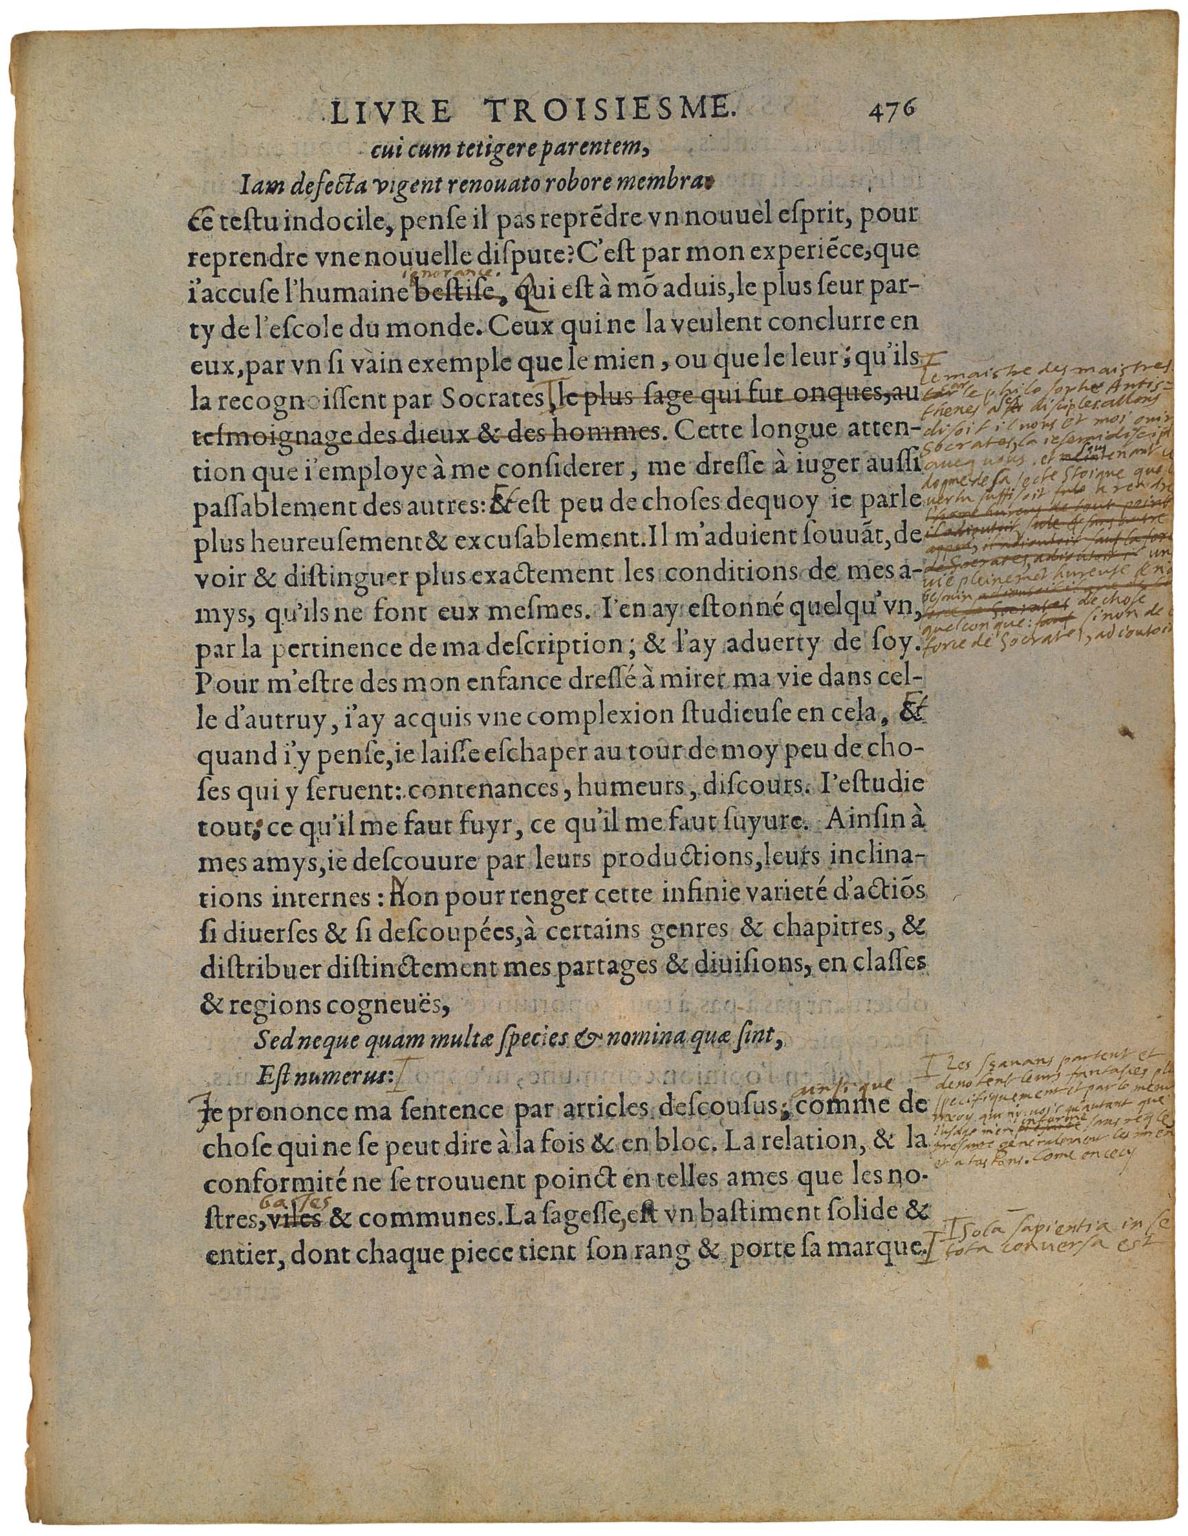 LIVRE TROISIESME. 476
cui cum tetigere parentem,
Iam defecta vigent renouato robore membra.
Ce testu indocile, pense il pas reprēdre vn nouuel esprit, pour
reprendre vne nouuelle dispute? C'est par mon experiēce, que
ignorance.
i'accuse l'humaine bestise, Qui est à mō aduis, le plus seur par-
ty de l'escole du monde. Ceux qui ne la veulent conclurre en
eux, par vn si vain exemple que le mien, ou que le leur; qu'ils
la recognoissent par Socrates, le plus sage qui fut onques, au
tesmoignage des dieux & des hommes. Cette longue atten-
tion que i'employe à me considerer, me dresse à iuger aussi
passablement des autres: Et est peu de choses dequoy ie parle
plus heureusement & excusablement. Il m'aduient souuāt, de
voir & distinguer plus exactement les conditions de mes a-
mys, qu'ils ne font eux mesmes. I'en ay estonné quelqu'vn,
par la pertinence de ma description; & l'ay aduerty de soy.
Pour m'estre des mon enfance dressé à mirer ma vie dans cel-
le d'autruy, i'ay acquis vne complexion studieuse en cela, Et
quand i'y pense, ie laisse eschaper au tour de moy peu de cho-
ses qui y seruent: contenances, humeurs, discours. I'estudie
tout: ce qu'il me faut fuyr, ce qu'il me faut suyure. Ainsin à
mes amys, ie descouure par leurs productions, leurs inclina-
tions internes: Non pour renger cette infinie varieté d'actiōs
si diuerses & si descoupées, à certains genres & chapitres, &
distribuer distinctement mes partages & diuisions, en classes
& regions cogneuës,
Sed neque quam multæ species & nomina quæ sint,
Est numerus:
einsi que
Je prononce ma sentence par articles descousus; comme de
chose qui ne se peut dire à la fois & en bloc. La relation, & la
conformité ne se trouuent poinct en telles ames que les no-
basses
stres, viles & communes. La sagesse, est vn bastiment solide &
entier, dont chaque piece tient son rang & porte sa marque.
le maistre des maistres
le philosophe Antis-
thenes a ses disciples allons
disoit il vous et moi ouir
Socrates la ie serai disciple
auec vous. et
dogme de sa secte Stoique que
vertu suffisoit a rendre
une vie pleinement hureuse
besouin
de chose
quelconque: sinon de
force de Socrates, adioutoit
Les sçauans partent et
denotent leurs fantasies
specifiquement et par le menu
moy qui n'y voys qu'autant que
l'usage m'en informe sans regle
presante generalement les mienes
et a tastons. Come en cecy
Sola sapientia in se
tota conuersa est